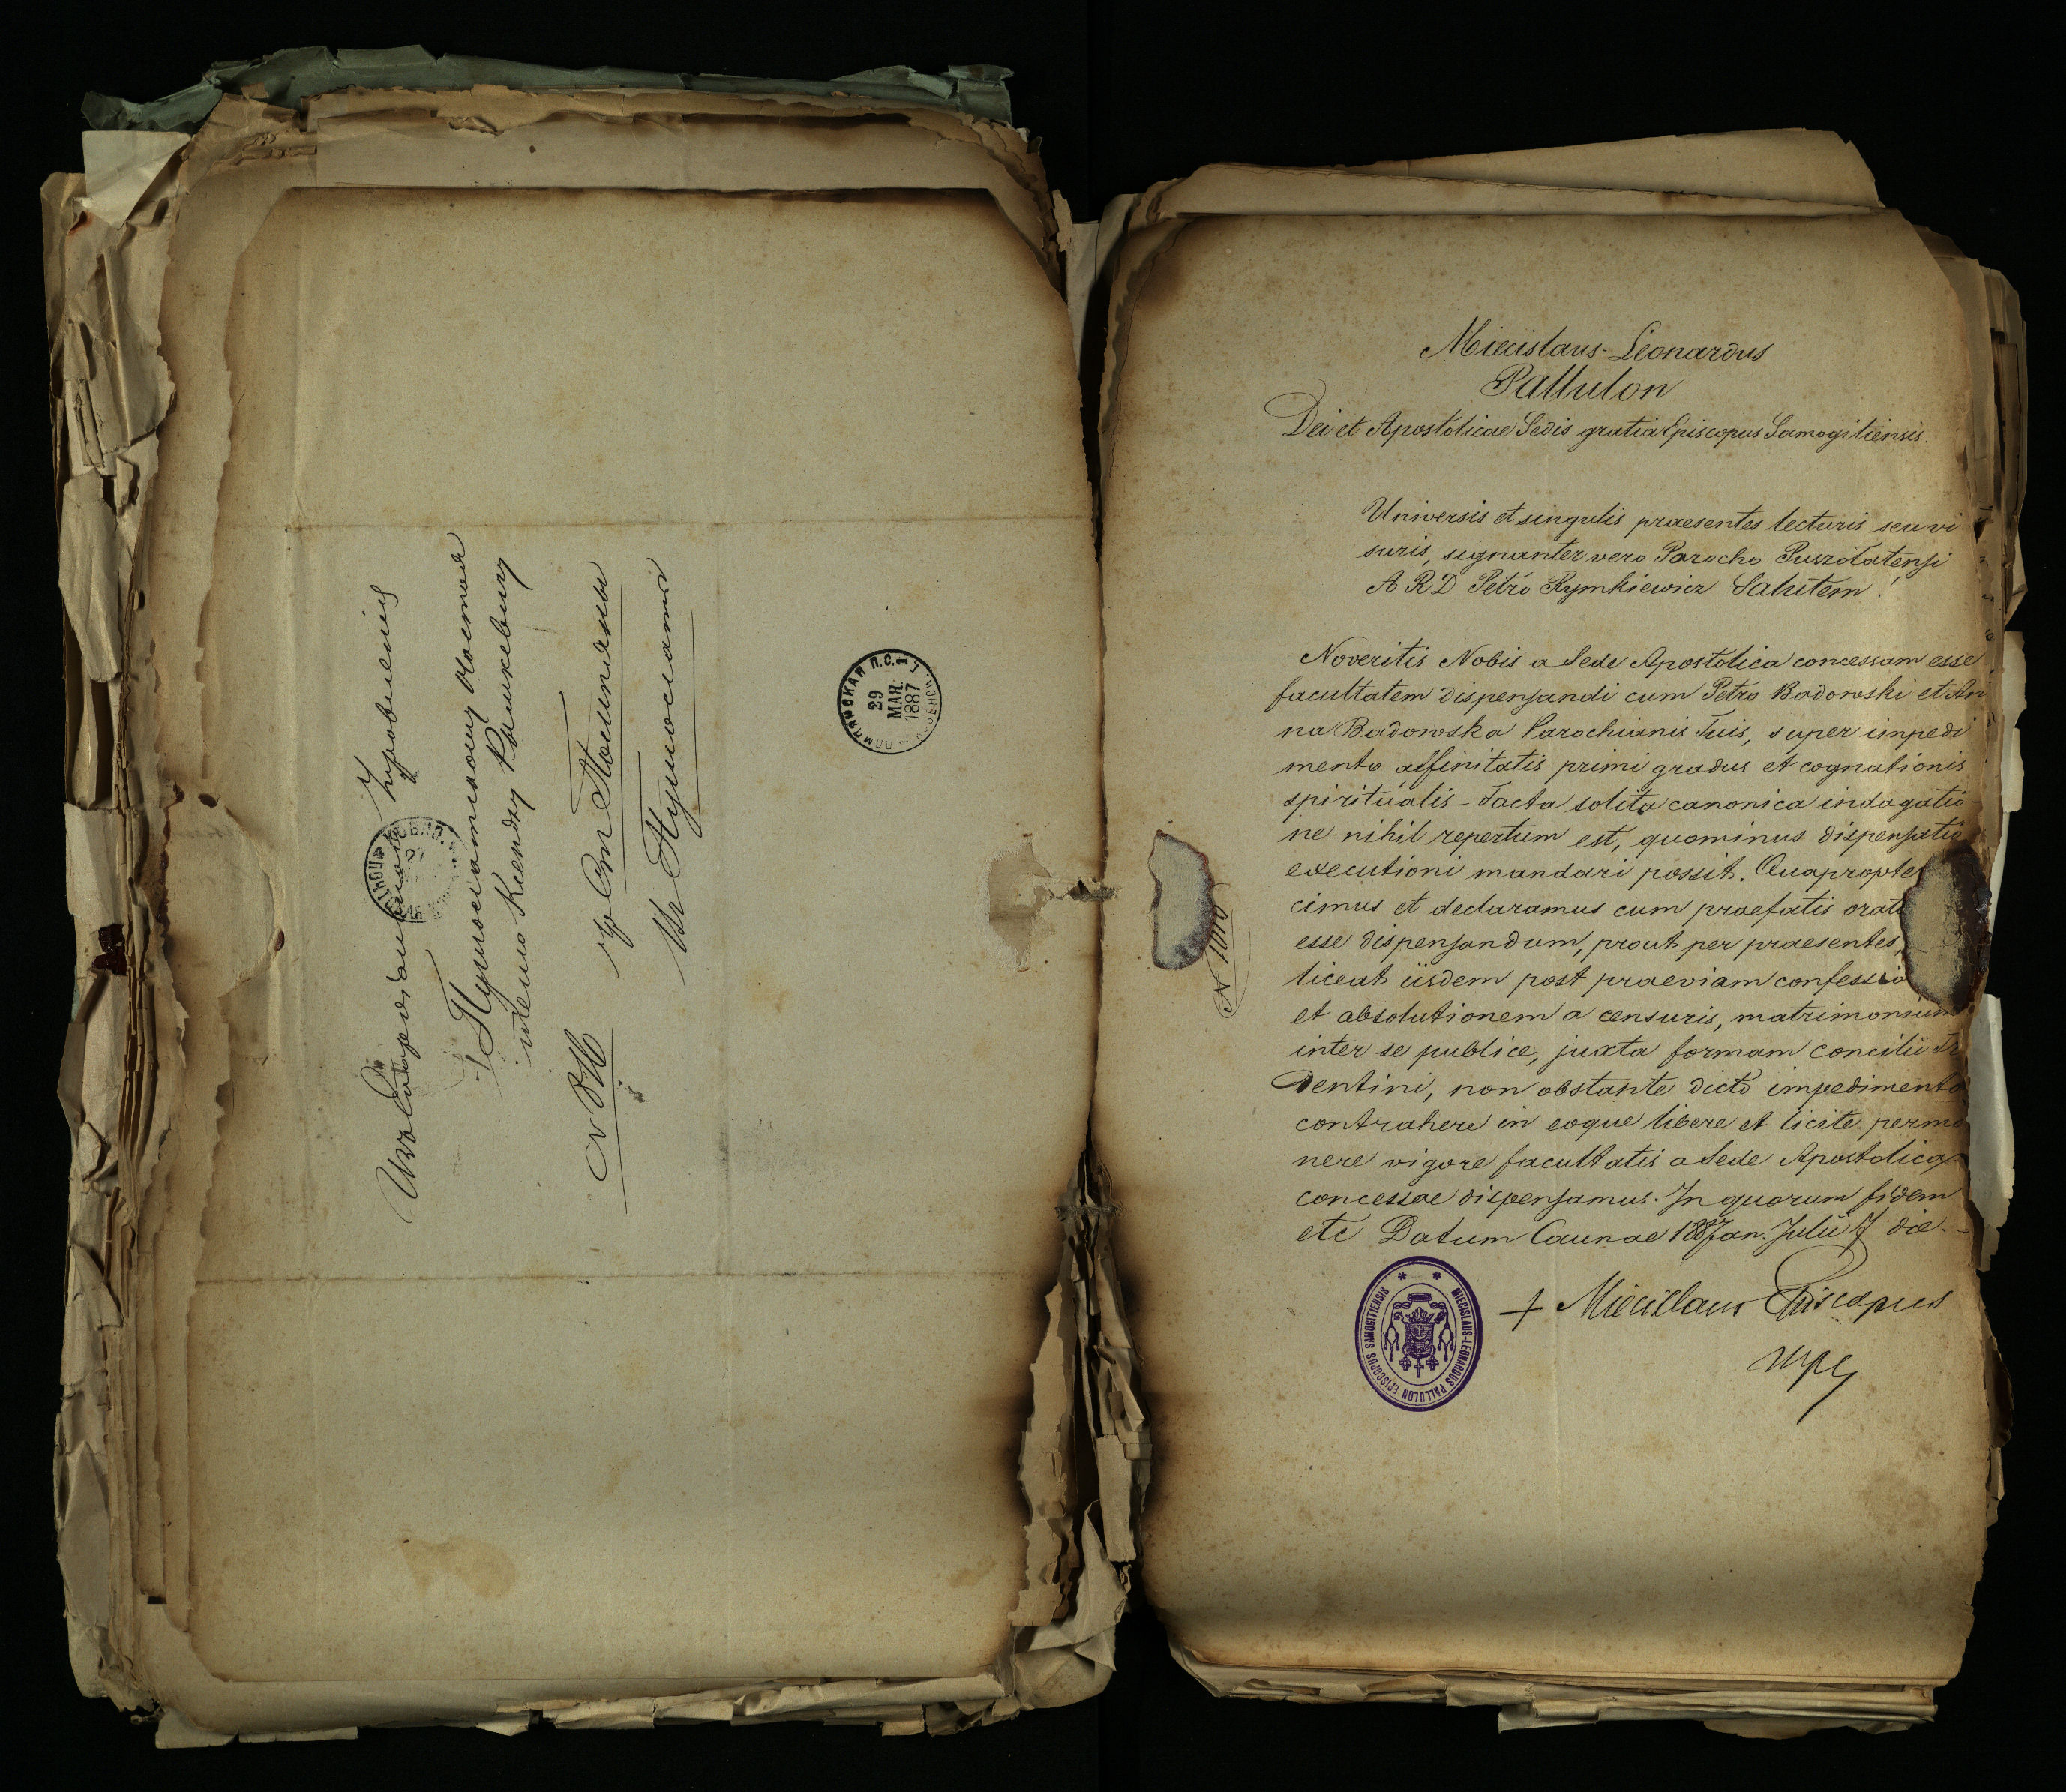 Консисторіи
Пушолатскому Настоя
телю Ксендзу Рымкевичу
N 811
чр Ст Помпяны
въ Пушолатъ
29
МАЯ
1887
Miecislaus-Leonardus
Pallulon
Dei et Apostolicae Sedis gratia Episcopus Samogitiensis.
Universis et singulis praesentes lecturis seu vi
suris, signanter vero Parocho Puszolatensi
A R D Petro Rymkiewicz Salutem!
Noveritis Nobis a Sede Apostolica concessam esse
facultatem dispensandi cum Petro Badowski et An
na Badowska Parochianis Tuis, super impedi
mento affinitatis primi gradus et cognationis
spiritualis – Facta solita canonica indagatio-
ne nihil repertum est, quominus dispensatio
executioni mandari possit. Quapropter
cimus et declaramus cum praefatis orat
esse dispensandum, prout per praesentes,
liceat iisdem post praeviam confessio
et absolutionem a censuris, matrimonium
inter se publice, juxta formam concilii Tr
dentini, non obstante dicto impedimento
contrahere in eoque libere et licite perma
nere vigore facultatis a Sede Apostolica
concessae dispensamus. In quorum fidem
etc Datum Caunae 1887 an. Julii 7 die.–
+ Miecislaus Episcopus
mp
MIECISLAUS-LEONARDUS PALLULON EPISCOPUS SAMOGITIENSIS